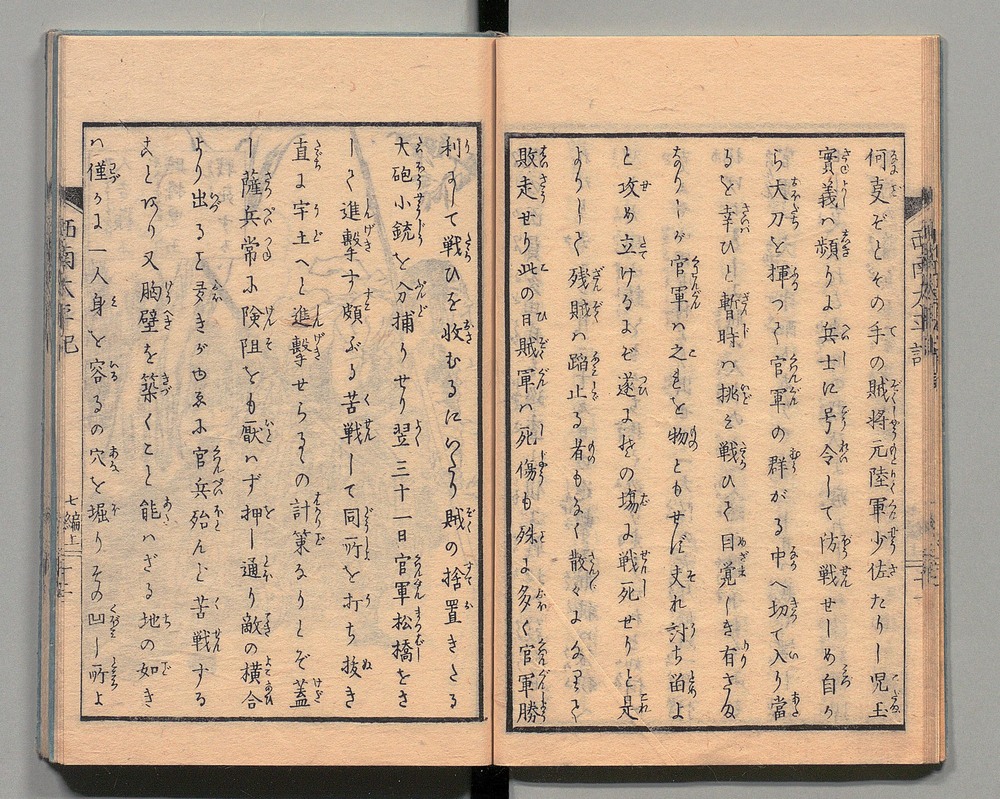 何叓ぞとその手の賊将元陸軍少佐たりし児玉
實義ハ頻りよ兵士に号令して防戦せしめ自か
ら大刀を揮つて官軍の群がる中へ切て入り當
るを幸ひと暫時ハ挑み戦ひと目覚しき有さま
なりしが官軍ハ之れを物ともせず夫れ討ち留よ
と攻め立けるよぞ遂よ其の塲よ戦死せりと是
よりして残賊ハ踏止る者もなく散々よなりて
敗走せり此の日賊軍ハ死傷も殊よ多く官軍勝
利よして戦ひを收むるにいたり賊の捨置きたる
大砲小銃を分捕りせり翌三十一日官軍松橋をさ
して進撃す頗ぶる苦戦して同所を打ち抜き
直よ宇土へと進撃せらるゝの計策なりとぞ蓋
し薩兵常に険阻をも厭ハず押し通り敵の横合
より出るを好きがゆゑに官兵殆んど苦戦する
ことあり又胸壁を築くこと能ハざる地の如き
ハ僅かよ一人身を容るの穴を堀りその凹し所よ
西南太平記
七編上